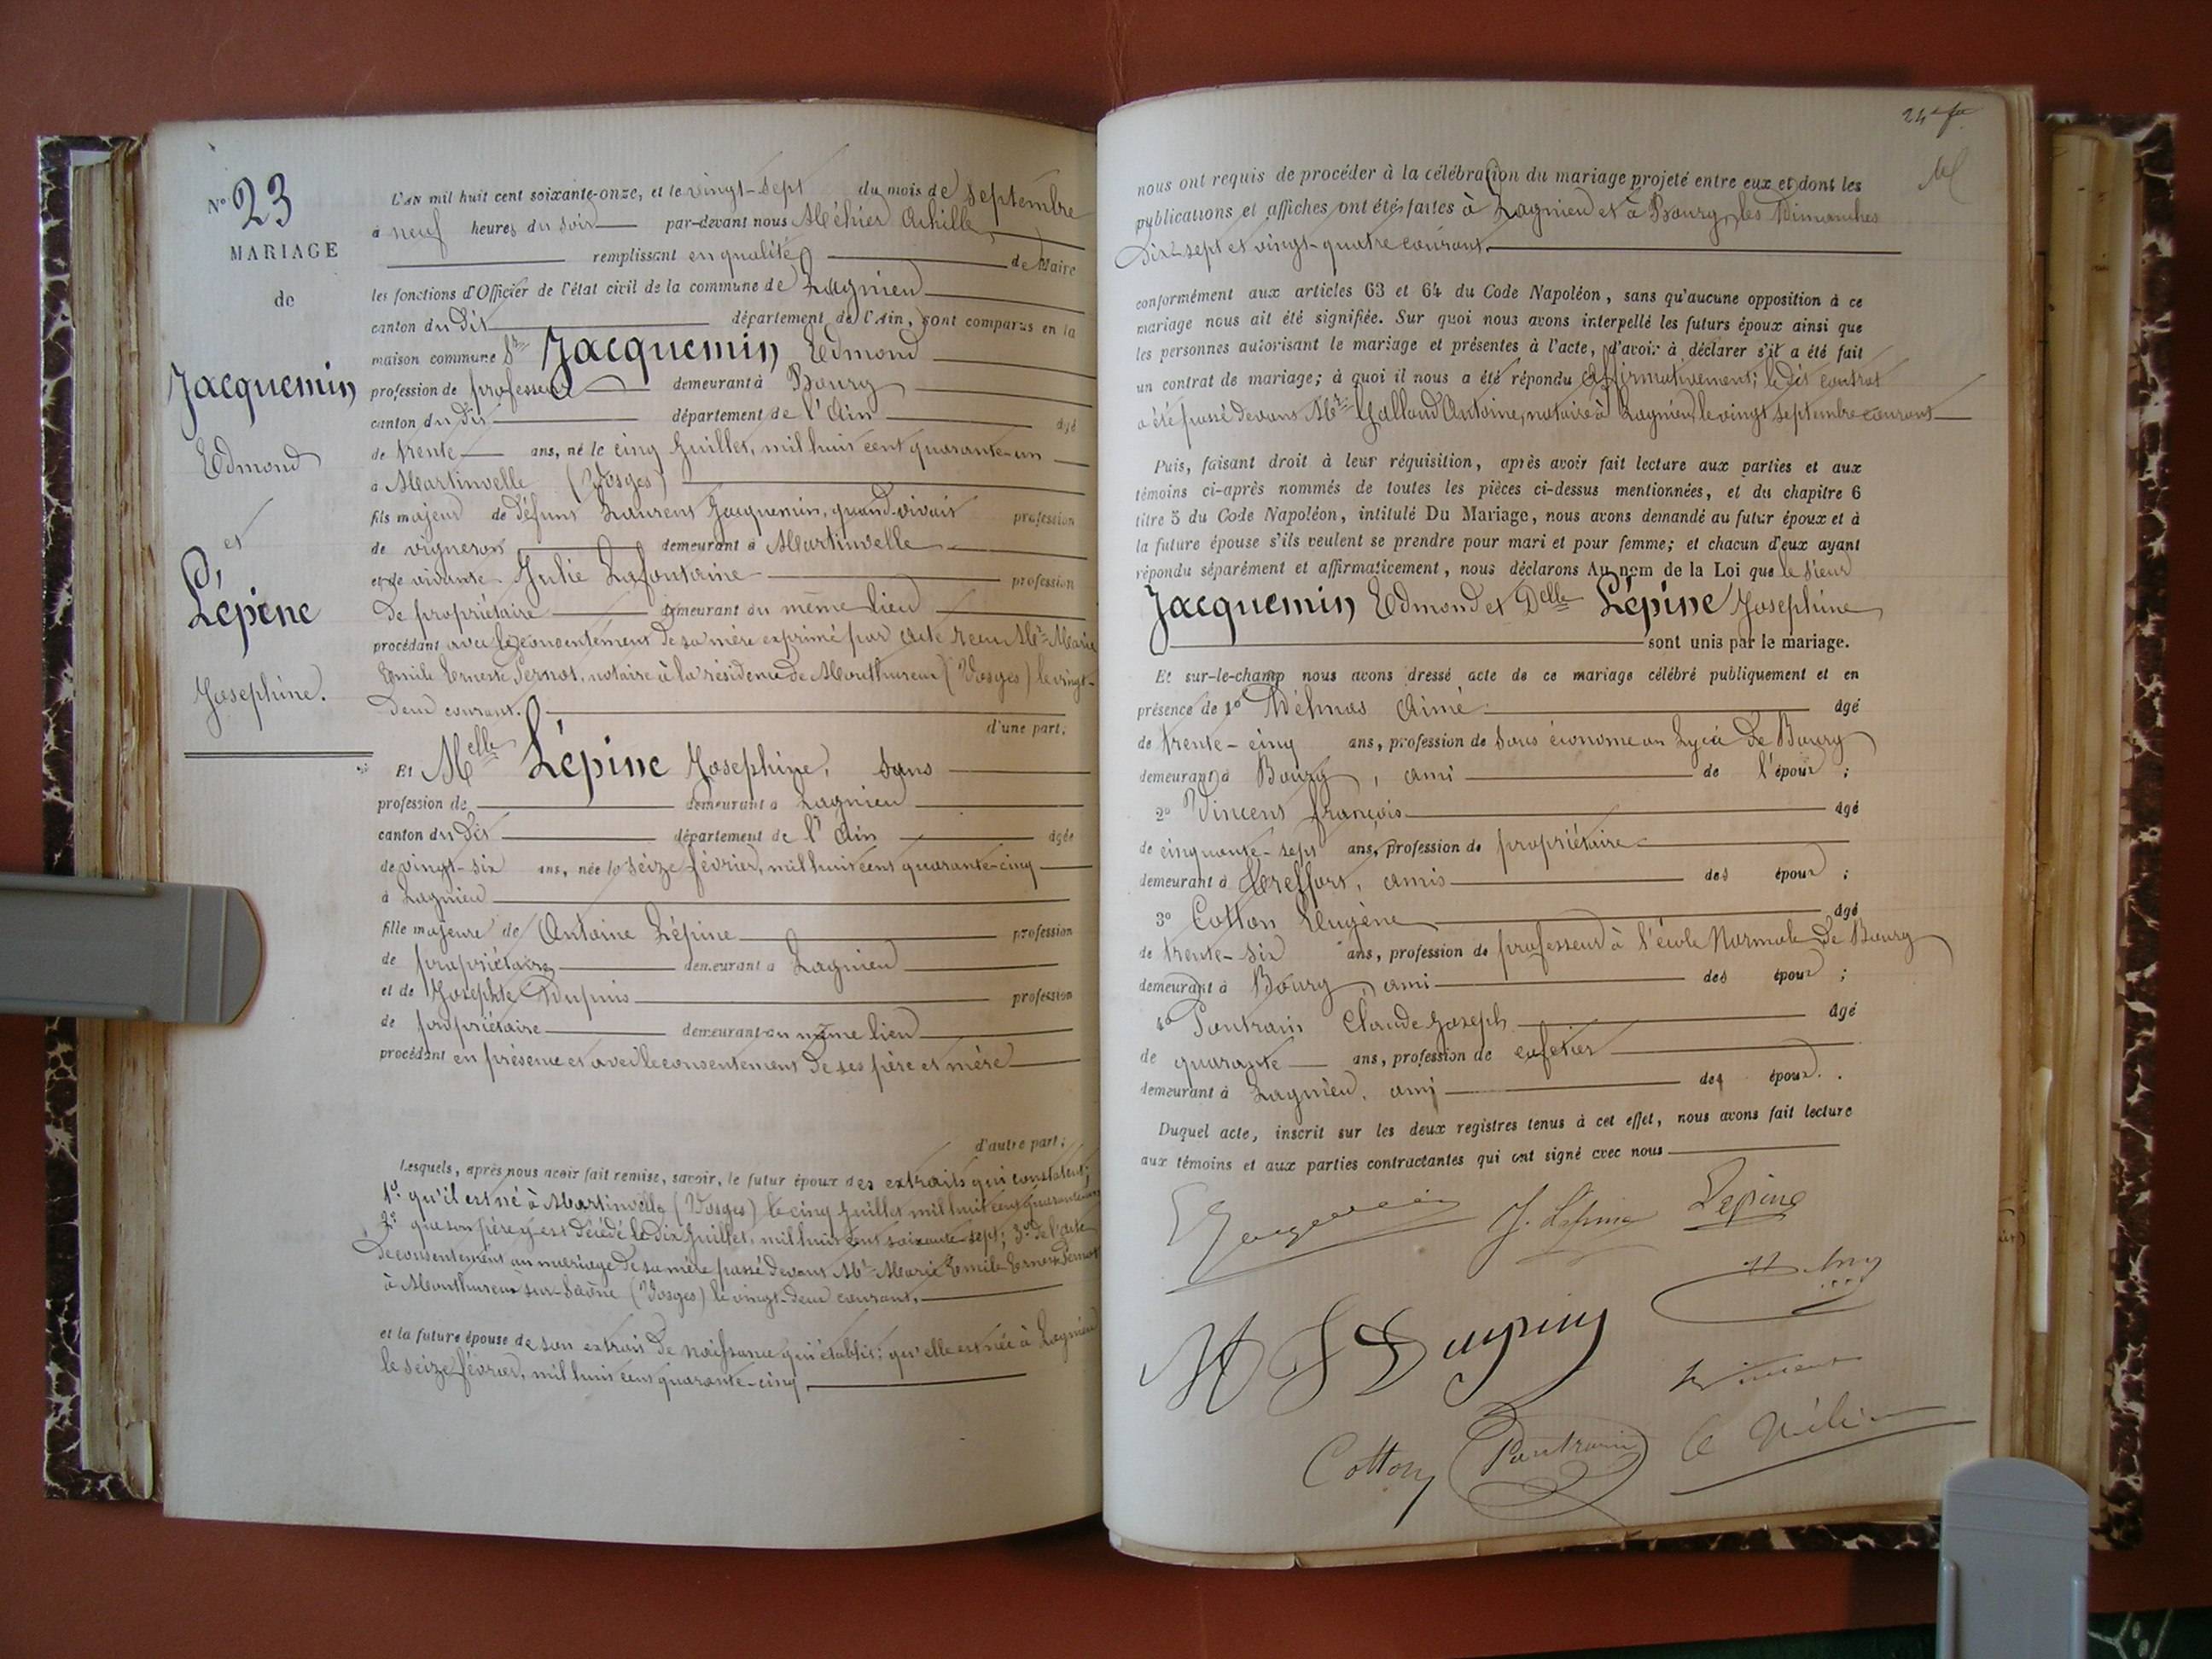 N° 23
MARIAGE
de
Jacquemin
Edmond
et
Lépine
Josephine.
L'AN mil huit cent soixante-onze, et le vingt-sept du mois de septembre
à neuf heures du soir par-devant nous Méhier Achille
remplissant en qualité de Maire
les fonctions d'Officier de l'état civil de la commune de Lagnieu
canton du dit département de l'Ain, sont comparus en la
maison commune Sr Jacquemin Edmond
profession de professeur demeurant à Bourg
canton du dit département de l'Ain âgé
de trente ans, né le cinq Juillet, mil huit cent quarante-un
à Martinvelle (Vosges)
fils majeur de défunt Laurent Jacquemin, quand vivait profession
de vigneron demeurant à Martinvelle
et de vivante Julie Lafontaine profession
de propriétaire demeurant au même lieu
procédant avec le consentement de sa mère exprimé par acte reçu Me Marie
Emile Ernest Pernot, notaire à la résidence de Monthureux (Vosges) le vingt-
deux courant.
d'une part;
Et Melle Lépine Josephine, sans
profession de demeurant à Lagnieu
canton du dit département de l'Ain âgée
de vingt-six ans, née le seize février, mil huit cent quarante-cinq
à Lagnieu
fille majeure de Antoine Lépine profession
de propriétaire demeurant à Lagnieu
et de Josephte Dupuis profession
de propriétaire demeurant au même lieu
procédant en présence et avec le consentement de ses père et mère
d'autre part;
Lesquels, après nous avoir fait remise, savoir, le futur époux des extraits qui constatent;
1° qu'il est né à Martinvelle (Vosges) le cinq Juillet mil huit cent quarante-un
2° que son père y est décédé le dix Juillet, mil huit cent soixante-sept; 3° de l'acte
de consentement au mariage de sa mère passé devant Me Marie Emile Ernest Pernot
à Monthureux sur-Saône (Vosges) le vingt-deux courant,
et la future épouse de son extrait de naissance qui établit; qu'elle est née à Lagnieu
le seize février, mil huit cent quarante-cinq,
nous ont requis de procéder à la célébration du mariage projeté entre eux et dont les
publications et affiches ont été faites à Lagnieu et à Bourg, les Dimanches
dix-sept et vingt-quatre courant.
conformément aux articles 63 et 64 du Code Napoléon, sans qu'aucune opposition à ce
mariage nous ait été signifiée. Sur quoi nous avons interpellé les futurs époux ainsi que
les personnes autorisant le mariage et présentes à l'acte, d'avoir à déclarer s'il a été fait
un contrat de mariage; à quoi il nous a été répondu Affirmativement; le dit contrat
a été passé devant Me Galland Antoine, notaire à Lagnieu, le vingt septembre courant
Puis, faisant droit à leur réquisition, après avoir fait lecture aux parties et aux
témoins ci-après nommés de toutes les pièces ci-dessus mentionnées, et du chapitre 6
titre 5 du Code Napoléon, intitulé Du Mariage, nous avons demandé au futur époux et à
la future épouse s'ils veulent se prendre pour mari et pour femme; et chacun d'eux ayant
répondu séparément et affirmativement, nous déclarons Au nom de la Loi que le Sieur
Jacquemin Edmond et Delle Lépine Josephine
sont unis par le mariage.
Et sur-le-champ nous avons dressé acte de ce mariage célébré publiquement et en
présence de 1° Délmas Aimé âgé
de trente-cinq ans, profession de sous économe au Lycée de Bourg
demeurant à Bourg, ami de l'époux;
2° Vincent françois âgé
de cinquante-sept ans, profession de propriétaire
demeurant à Treffort, amis des époux;
3° Cotton Eugène âgé
de trente-six ans, profession de professeur à l'école Normale de Bourg
demeurant à Bourg, ami des époux;
4° Pontrain Claude Joseph âgé
de quarante ans, profession de cafetier
demeurant à Lagnieu, ami des époux.
Duquel acte, inscrit sur les deux registres tenus à cet effet, nous avons fait lecture
aux témoins et aux parties contractantes qui ont signé avec nous
J. Lépine Lepine
Dupuis
Vincent
Cotton Pontrain